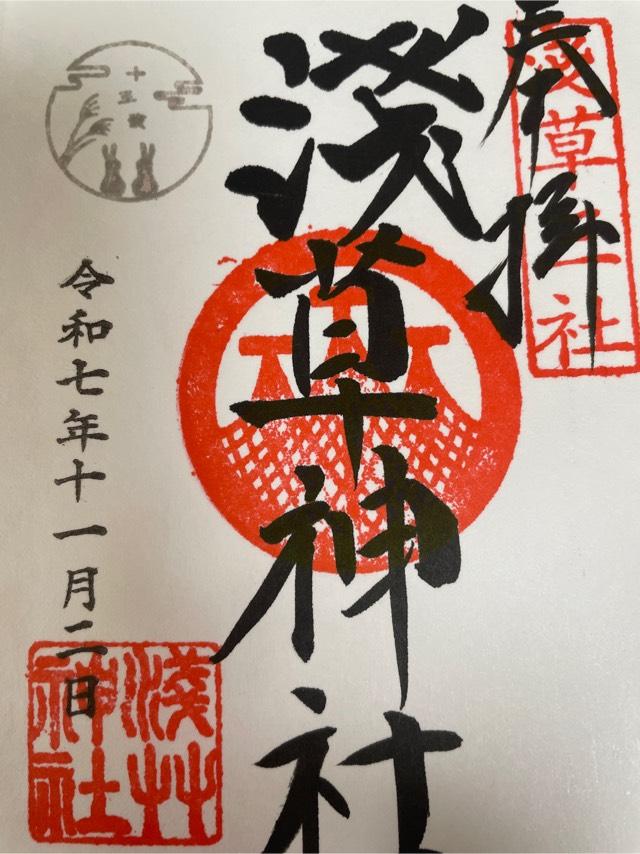 奉拝
淺草神社
淺草神社
十三夜
令和七年十一月二日
淺草
神社